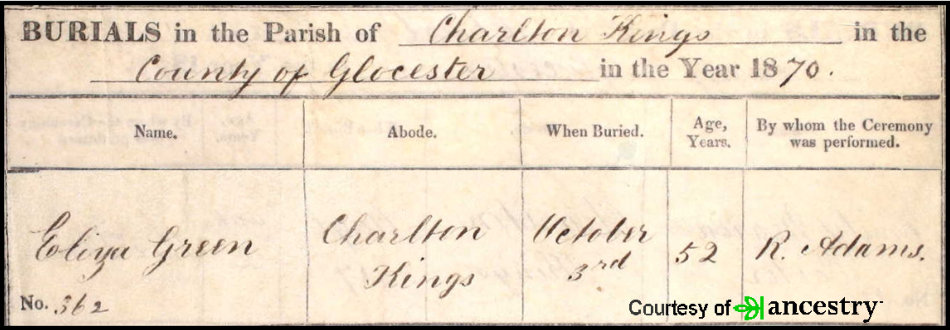 BURIALS in the Parish of Charlton Kings in the
County of Glocester in the Year 1870.
Name. Abode. When Buried. Age, Years. By whom the Ceremony was performed.
Eliza Green Charlton Kings October 3rd 52 R. Adams.
No. 362
Courtesy of ancestry